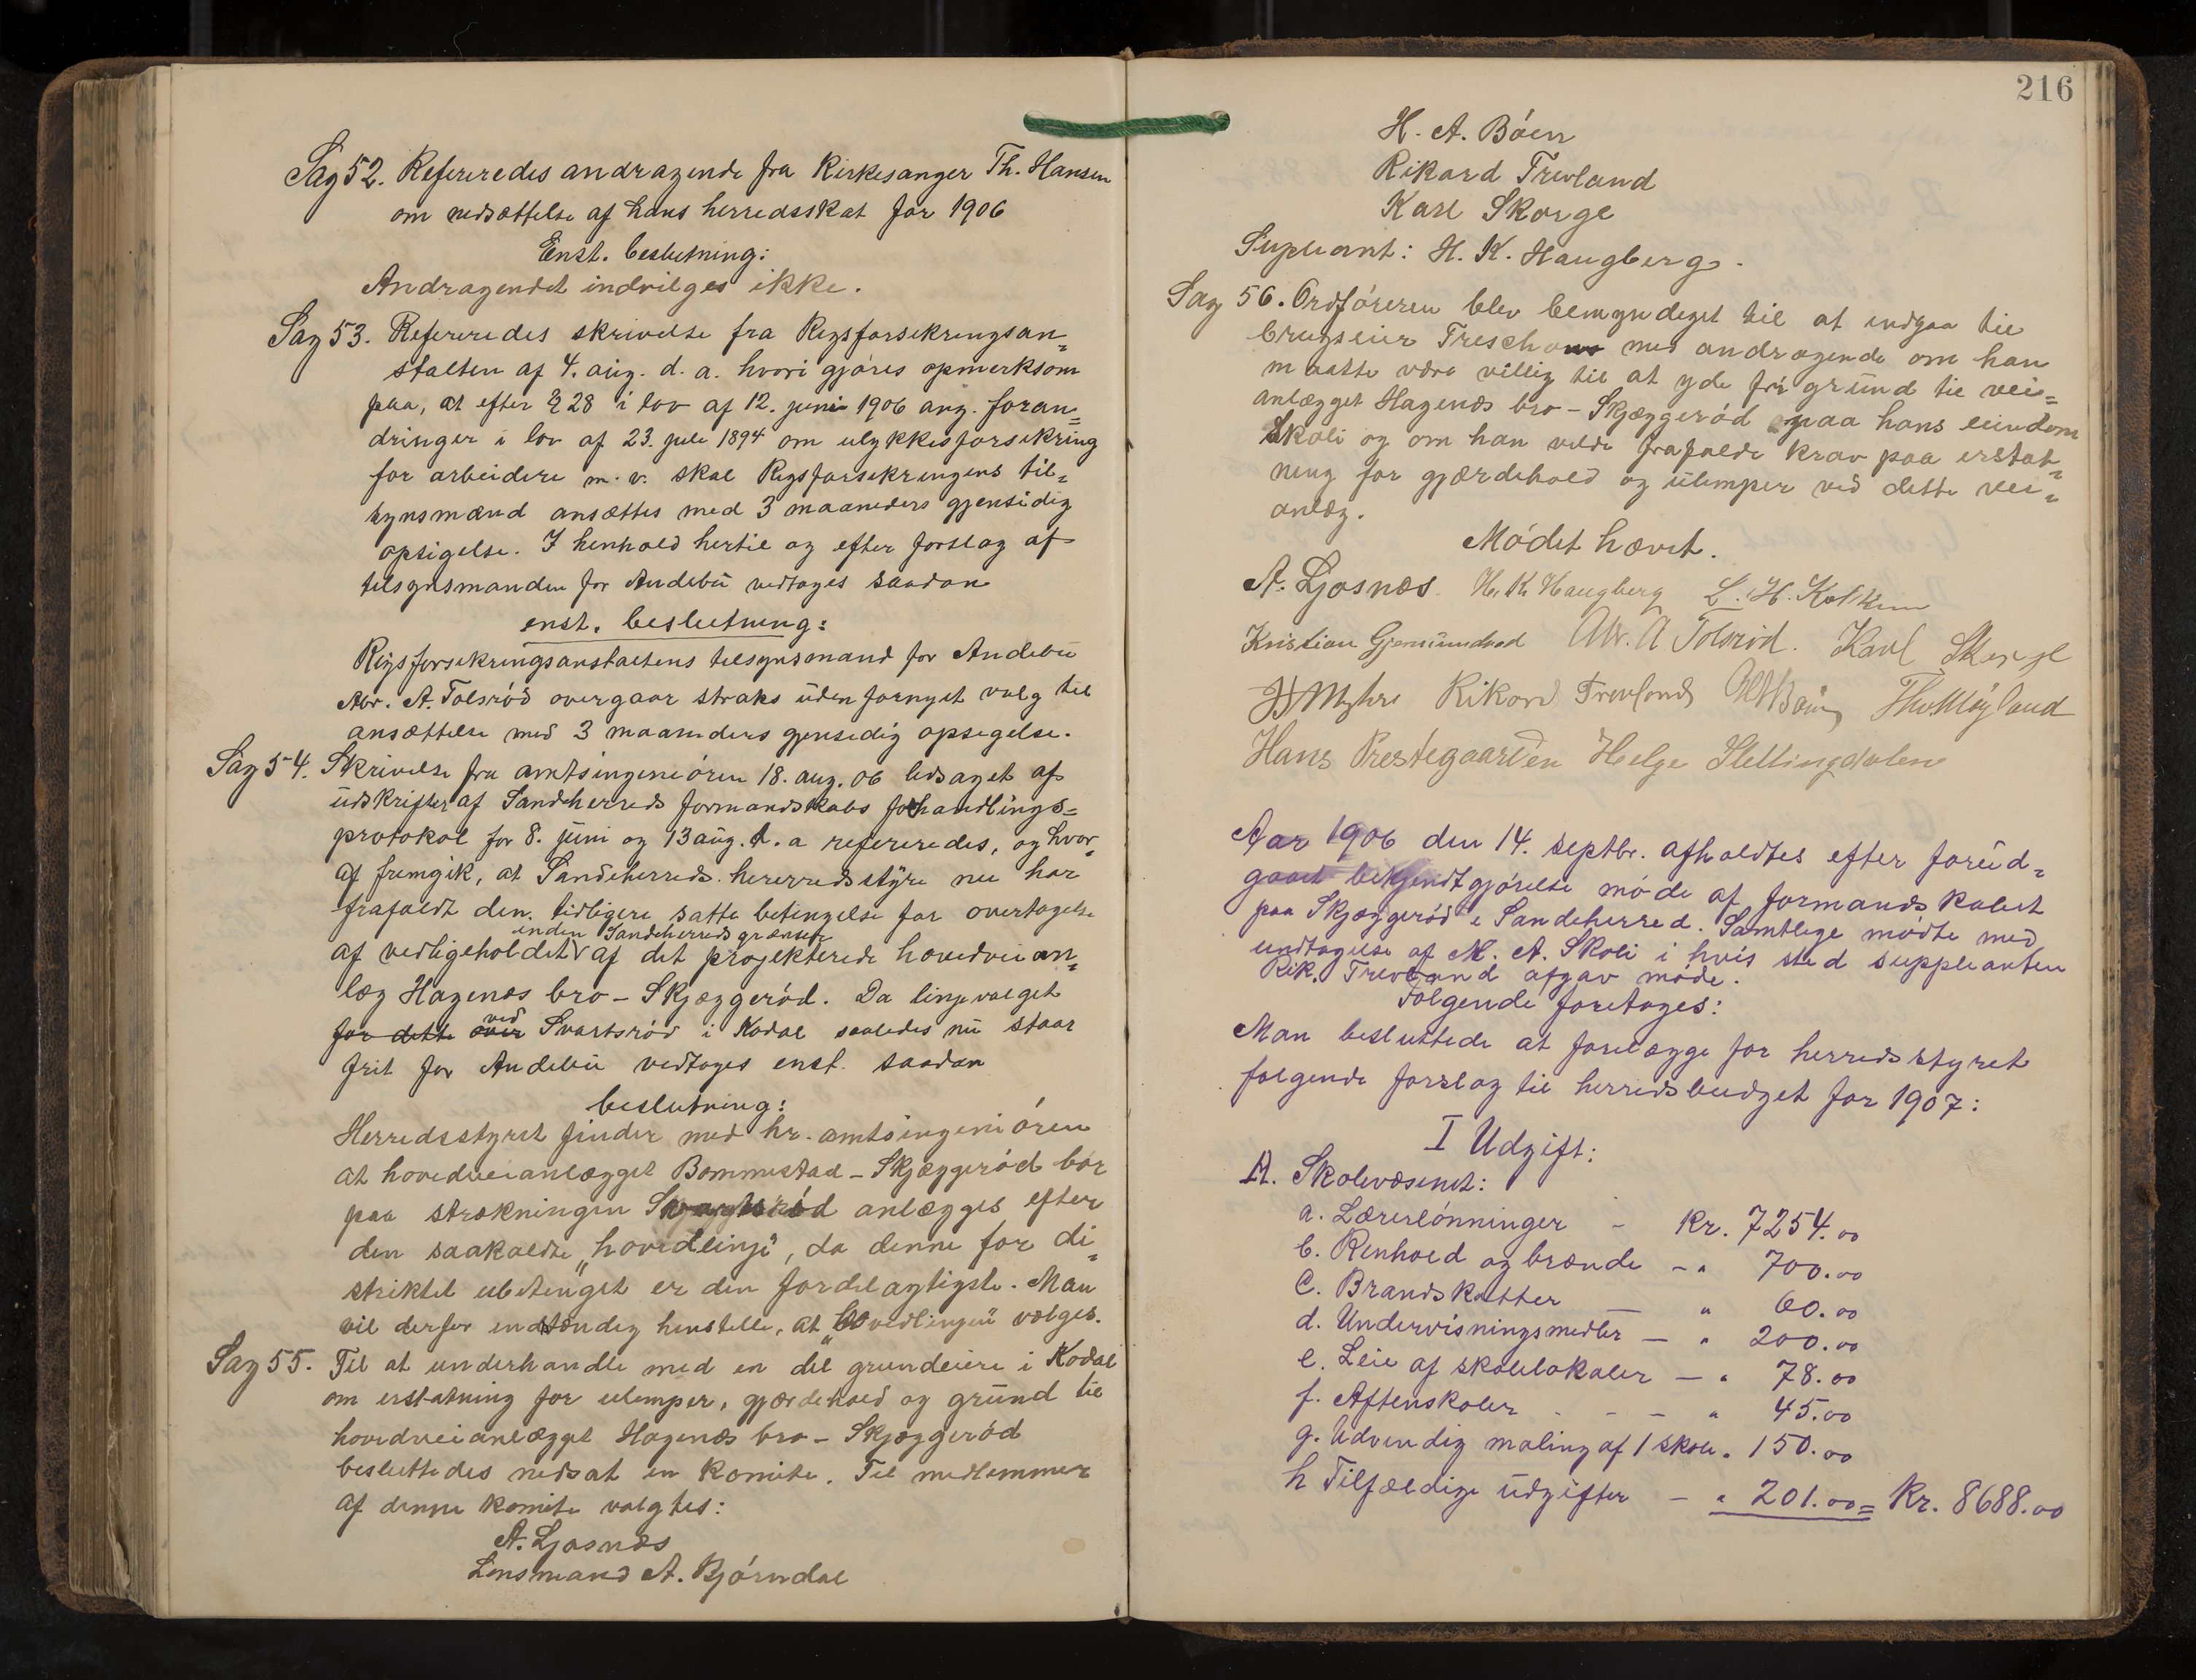 Sag 52. Refereredes andragende fra Kirkesanger Th. Hansen
om nedsættelse af hans herredsskat for 1906
Enst. beslutning:
Andragendet indvilges ikke.
Sag 53. Refereredes skrivelse fra Rigsforsikringsan=
stalten af 4. aug. d. a. hvori gjøres opmerksom
paa, at efter § 28 i lov af 12. juni 1906 ang. foran=
dringer i lov af 23. juli 1894 om ulykkesforsikring
for arbeidere m. v. skal Rigsforsikringens til=
synsmænd ansættes med 3 maaneders gjensidig
opsigelse. I henhold hertil og efter forslag af
tilsynsmanden for Andebu vedtoges saadan
enst. beslutning:
Rigsforsikringsanstaltens tilsynsmand for Andebu
Abr. A. Tolsrød overgaar straks uden fornyet valg til
ansættelse med 3 maaneders gjensidig opsigelse.
Sag 54. Skrivelse fra amtsingeniøren 18. aug. 06 ledsaget af
udskrifter af Sandeherreds formandskabs forhandlings=
protokol for 8. juni og 13 aug. d. a refereredes, og hvor=
af fremgik, at Sandeherreds herredsstyre nu har
frafaldt den tidligere satte betingelse for overtagelse
inden Sandeherreds grænser
af vedligeholdet af det projekterede hovedveian=
læg Hagenæs bro - Skjæggerød. Da linjevalget
for dette over ved Svartsrød i Kodal saaledes nu staar
frit for Andebu vedtoges enst. saadan
beslutning:
Herredsstyret finder med hr. amtsingeniøren
at hovedveianlægget Bommestad - Skjæggerød bør
paa strækningen Svartsrød anlægges efter
den saakaldte „hovedlinje", da denne for di=
striktet ubetinget er den fordelagtigste. Man
vil derfor indstændig henstille, at „hovedlinjen" vælges.
Sag 55. Til at underhandle med en del grundeiere i Kodal
om erstatning for ulemper, gjærdehold og grund til
hovedveianlægget Hagenæs bro - Skjæggerød
besluttedes nedsat en komite. Til medlemmer
af denne komite valgtes:
A. Gjosnæs
Lensmand A. Bjørndal
216
H. A. Bøen
Rikard Trevland
Karl Skorge
Supleant: H. K. Haugberg.
Sag 56. Ordføreren blev bemyndiget til at indgaa til
brugseier Treschow med andragende om han
maatte være villig til at yde fri grund til vei=
anlægget Hagenæs bro - Skjæggerød paa hans eiendom
Skoli og om han vilde frafalde krav paa erstat=
ning for gjærdehold og ulemper ved dette vei=
anlæg.
Mødet hævet.
A. Gjosnæs H. K. Haugberg L. H. Kolkinn
Kristian Gjermundrød Abr. A Tolsrød. Karl Skorge
Myhre Rikard Trevland HABøen Th. Møyland
Hans Prestegaarden Helge Slettingdalen
Aar 1906 den 14. septbr. afholdtes efter forud=
gaaet bekjendtgjørelse møde af formandskabet
paa Skjæggerød i Sandeherred. Samtlige mødte med
undtagelse af M. A. Skoli i hvis sted suppleanten
Rik. Trevland afgav møde.
Følgende foretoges:
Man besluttede at forelægge for herredsstyret
følgende forslag til herredsbudget for 1907:
I Udgift:
A. Skolevæsenet:
a. Lærerlønninger - Kr. 7254.00
b. Renhold og brænde - " 700.00
c. Brandskatter - " 60.00
d. Undervisningsmidler - " 200.00
e. Leie af skolelokaler - " 78.00
f. Aftenskoler - - - " 45.00
g. Udvendig maling af 1 skole " 150.00
h Tilfældige udgifter - " 201.00 = Kr. 8688.00